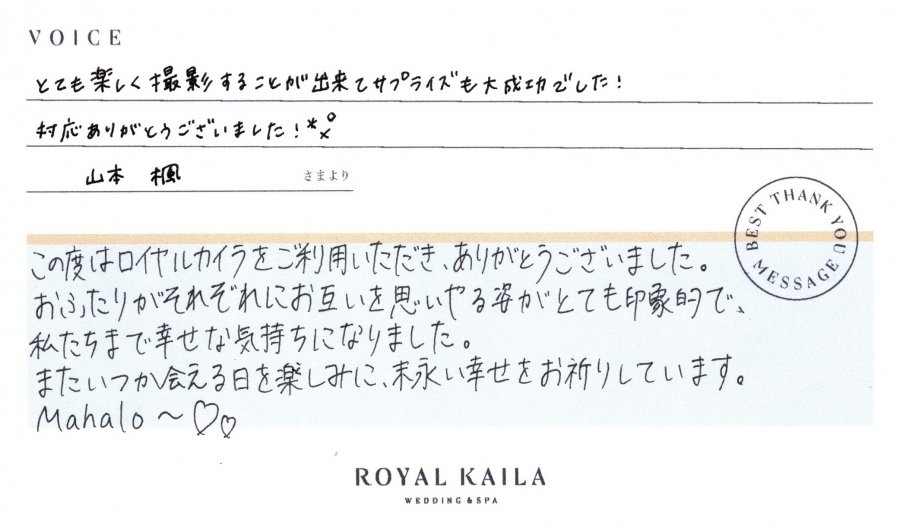 VOICE
とても楽しく撮影することが出来てサプライズも大成功でした!
対応ありがとうございました!
山本 楓 さまより
BEST THANK YOU MESSAGE
この度はロイヤルカイラをご利用いただき、ありがとうございました。
おふたりがそれぞれにお互いを思いやる姿がとても印象的で、
私たちまで幸せな気持ちになりました。
またいつか会える日を楽しみに、末永い幸せをお祈りしています。
Mahalo~♡♡
ROYAL KAILA
WEDDING & SPA